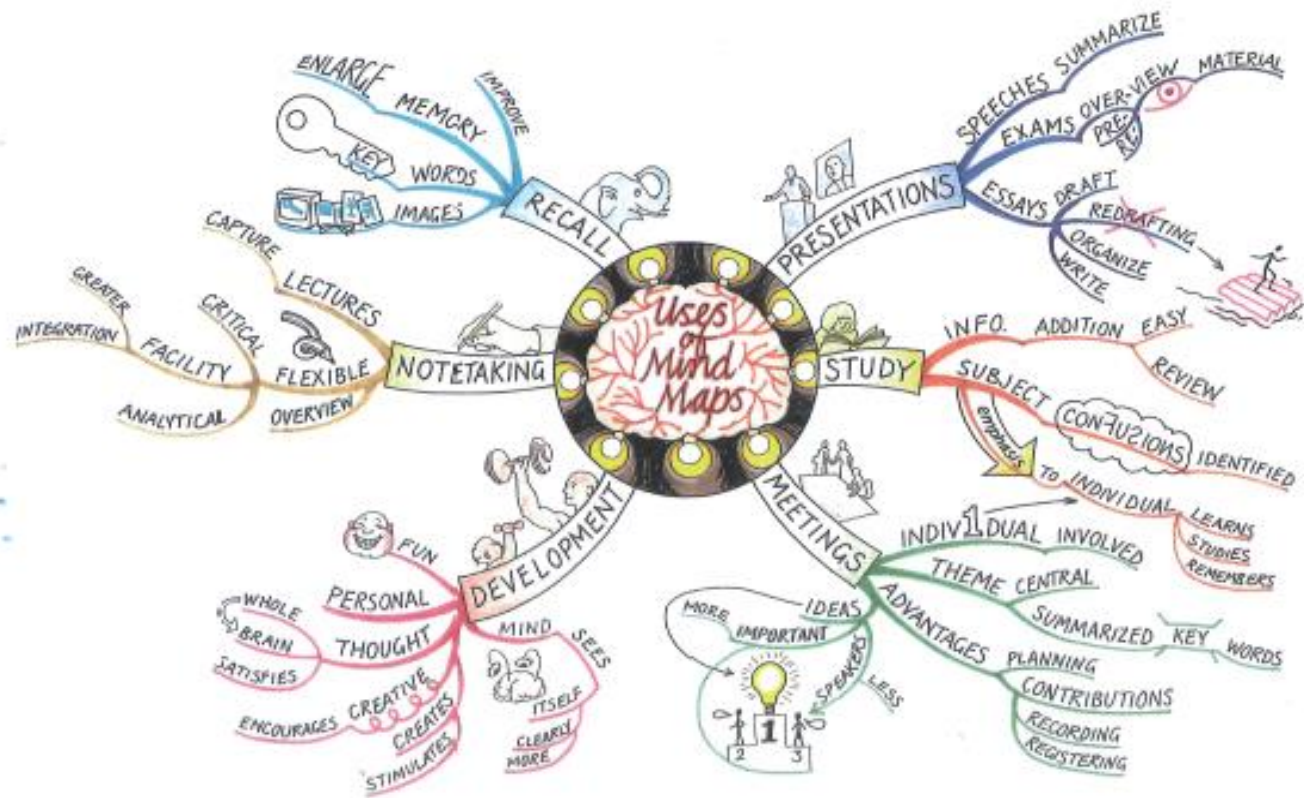 Uses
of
Mind
Maps
RECALL
ENLARGE
MEMORY
IMPROVE
KEY
WORDS
IMAGES
PRESENTATIONS
SPEECHES SUMMARIZE
EXAMS OVER-VIEW MATERIAL
PRE-
RE-
ESSAYS DRAFT
REDRAFTING
ORGANIZE
WRITE
STUDY
INFO. ADDITION EASY
REVIEW
SUBJECT CONFUSIONS IDENTIFIED
emphasis TO INDIVIDUAL LEARNS
STUDIES
REMEMBERS
MEETINGS
INDIV1DUAL INVOLVED
THEME CENTRAL
SUMMARIZED KEY WORDS
ADVANTAGES PLANNING
CONTRIBUTIONS
RECORDING
REGISTERING
IDEAS
MORE IMPORTANT
SPEAKERS LESS
1
2 3
DEVELOPMENT
FUN
PERSONAL
THOUGHT
WHOLE
BRAIN
SATISFIES
CREATIVE
ENCOURAGES
CREATES
STIMULATES
MIND SEES
ITSELF
CLEARLY
MORE
NOTETAKING
CAPTURE
LECTURES
FLEXIBLE
CRITICAL
FACILITY
GREATER
INTEGRATION
ANALYTICAL
OVERVIEW